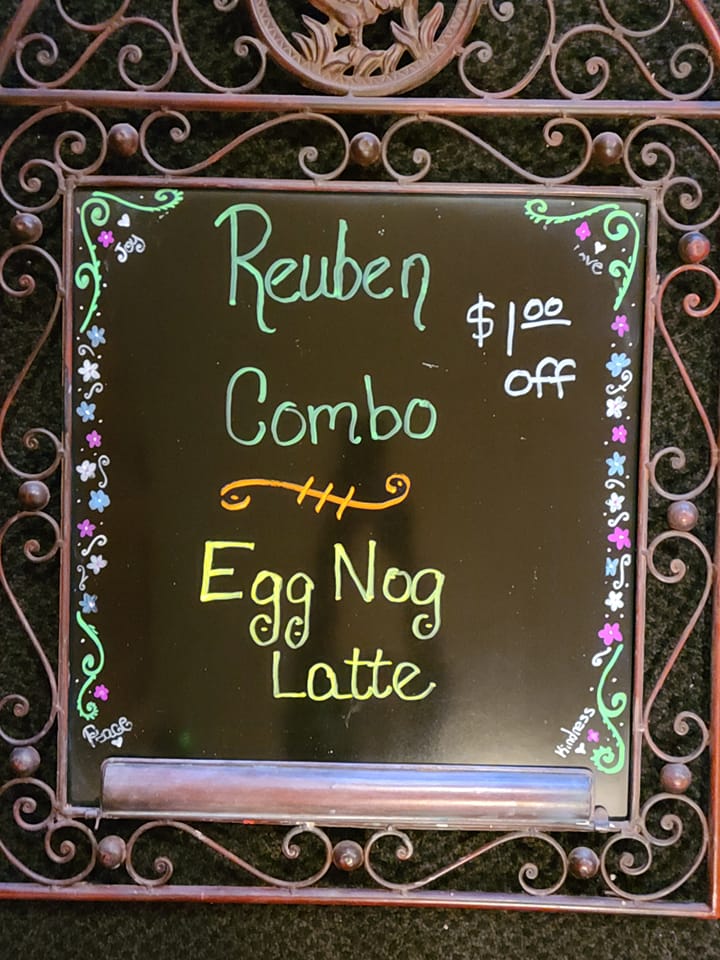 Joy
Love
Reuben
$1.00
off
Combo
Egg Nog
Latte
Peace
Kindness